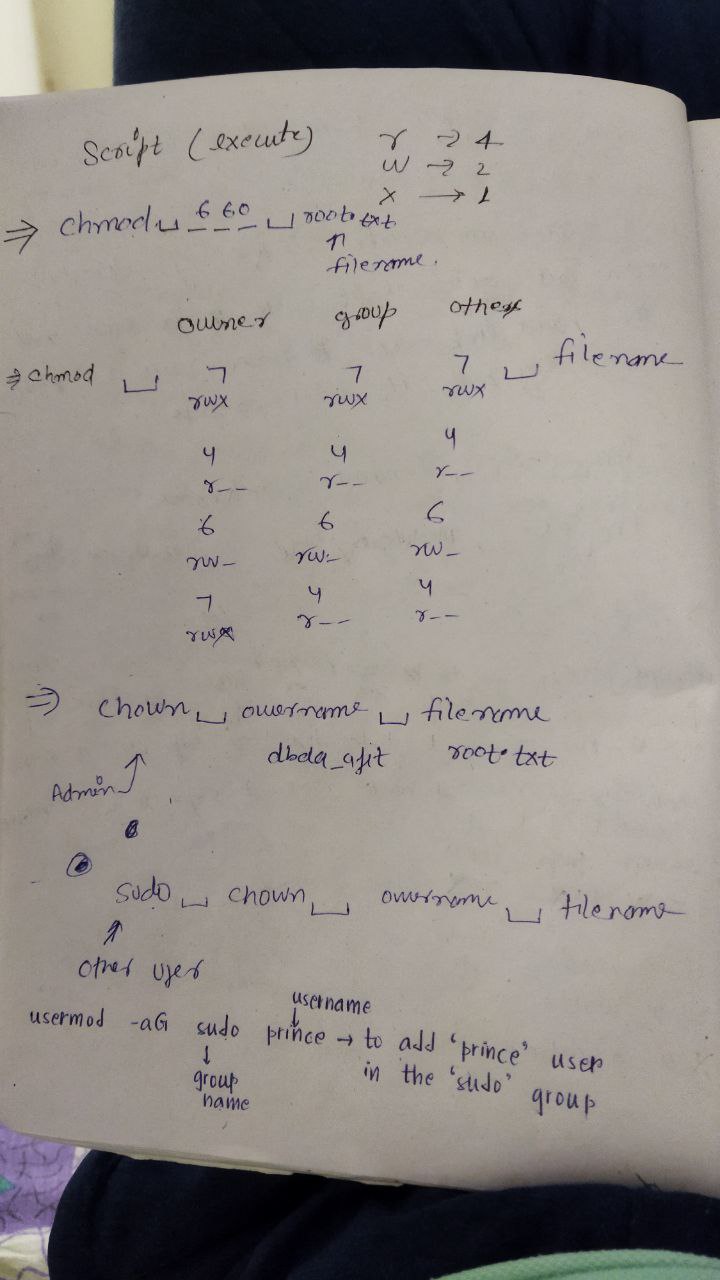 Script (execute) r → 4
w → 2
x → 1
⇒ chmod ␣ 660 ␣ root.txt
↑
filename.
owner group other
⇒ chmod ␣ 7 7 7 ␣ filename
rwx rwx rwx
4 4 4
r-- r-- r--
6 6 6
rw- rw- rw-
7 4 4
rwx r-- r--
⇒ chown ␣ ownername ␣ filename
dbda_ajit root.txt
Admin
sudo ␣ chown ␣ ownername ␣ filename
↑
other user
username
↓
usermod -aG sudo prince → to add 'prince' user
in the 'sudo' group
↓
group
name